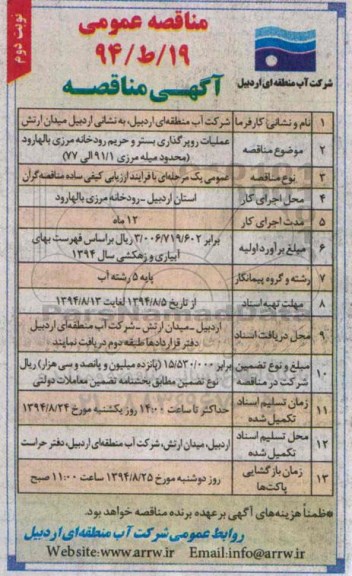 نوبت دوم
مناقصه عمومی
۹۴/ط/۱۹
آگهی مناقصه
شرکت آب منطقه‌ای اردبیل
۱ نام و نشانی کارفرما شرکت آب منطقه‌ای اردبیل، به نشانی اردبیل میدان ارتش
۲ موضوع مناقصه عملیات رویرگذاری بستر و حریم رودخانه مرزی بالهارود
(محدود میله مرزی ۹۱/۱ الی ۷۷)
۳ نوع مناقصه عمومی یک مرحله‌ای با فرایند ارزیابی کیفی ساده مناقصه‌گران
۴ محل اجرای کار استان اردبیل - رودخانه مرزی بالهارود
۵ مدت اجرای کار ۱۲ ماه
۶ مبلغ برآورد اولیه برابر ۳/۰۰۶/۷۱۹/۶۰۲ ریال براساس فهرست بهای
آبیاری و زهکشی سال ۱۳۹۴
۷ رشته و گروه پیمانکار پایه ۵ رشته آب
۸ مهلت تهیه اسناد از تاریخ ۱۳۹۴/۸/۵ لغایت ۱۳۹۴/۸/۱۳
۹ محل دریافت اسناد اردبیل - میدان ارتش - شرکت آب منطقه‌ای اردبیل
دفتر قراردادها طبقه دوم دریافت نمایند
۱۰ مبلغ و نوع تضمین شرکت در مناقصه برابر ۱۵/۵۳۰/۰۰۰ (پانزده میلیون و پانصد و سی هزار) ریال
نوع تضمین مطابق بخشنامه تضمین معاملات دولتی
۱۱ زمان تسلیم اسناد تکمیل شده حداکثر تا ساعت ۱۴:۰۰ روز یکشنبه مورخ ۱۳۹۴/۸/۲۴
۱۲ محل تسلیم اسناد تکمیل شده اردبیل، میدان ارتش، شرکت آب منطقه‌ای اردبیل، دفتر حراست
۱۳ زمان بازگشایی پاکت‌ها روز دوشنبه مورخ ۱۳۹۴/۸/۲۵ ساعت ۱۱:۰۰ صبح
*ظمناً هزینه‌های آگهی بر عهده برنده مناقصه خواهد بود.
روابط عمومی شرکت آب منطقه‌ای اردبیل
Website:www.arrw.ir Email:info@arrw.ir